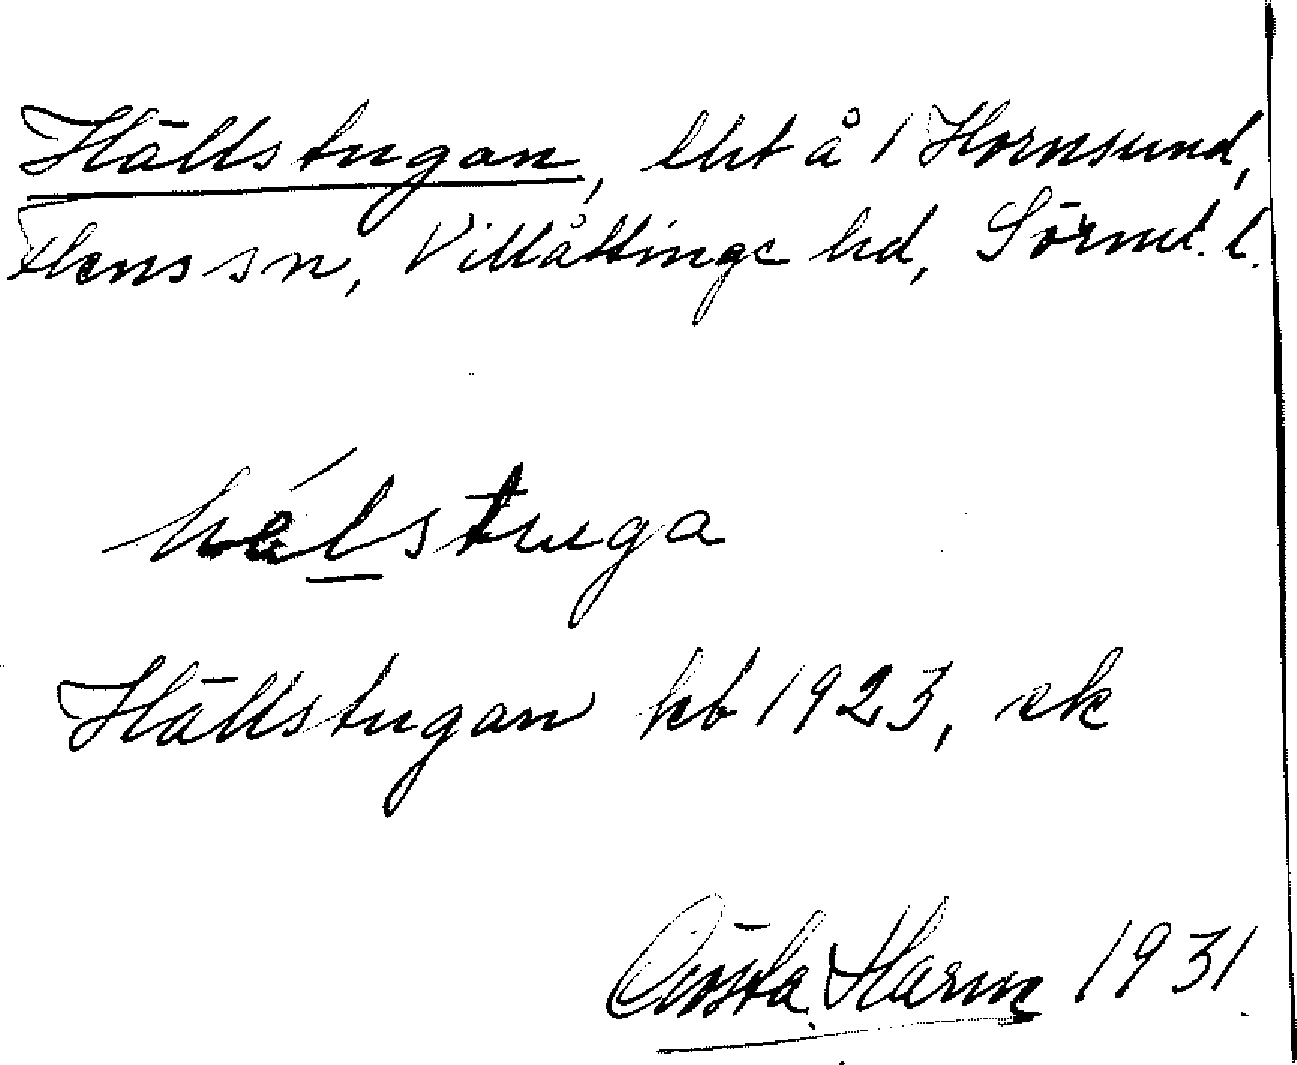 Hällstugan, lht å 1 Hornsund,
Flens sn, Villåttinge hd, Sörml. l.
hélstuga
Hällstugan kb 1923, ek
Gösta Harm 1931